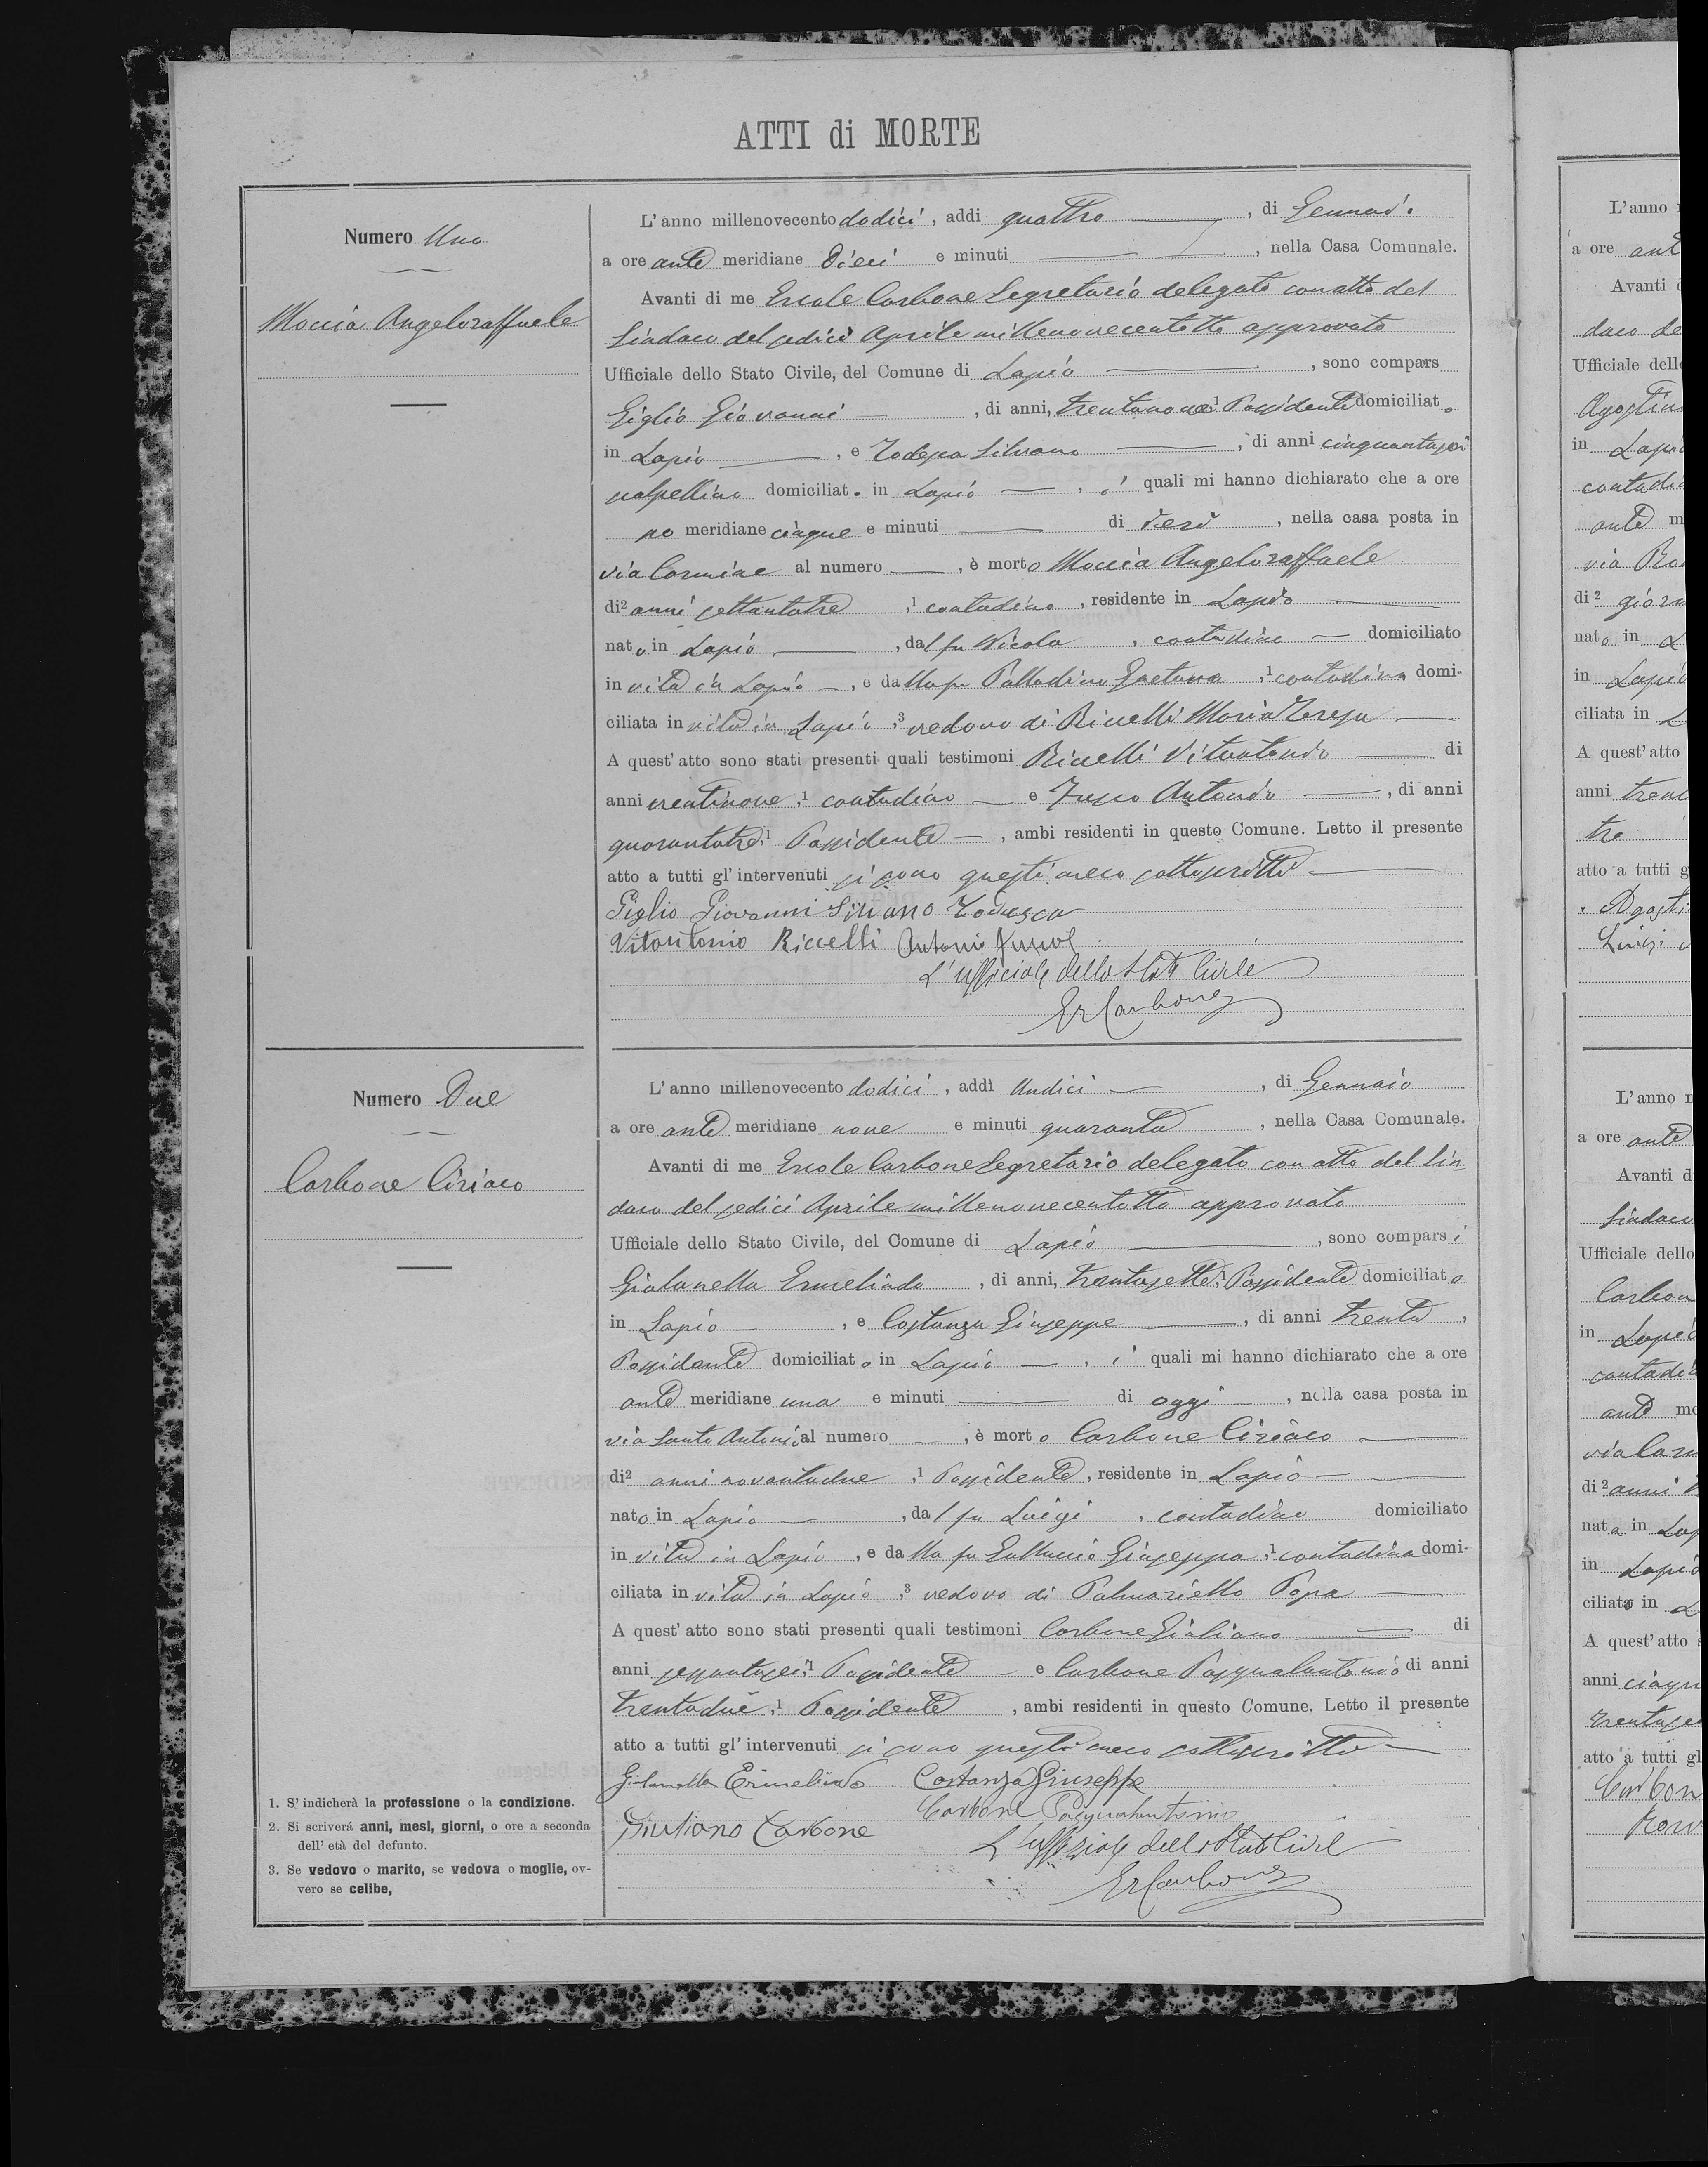 ATTI di MORTE
Numero Uno
Moccia Angeloraffaele
L'anno millenovecento dodici, addi quattro, di Gennaio
a ore ante meridiane dieci e minuti, nella Casa Comunale.
Avanti di me Ercole Carbone Segretario delegato con atto del
Sindaco del sedici Aprile millenovecentotto approvato
Ufficiale dello Stato Civile, del Comune di Lapio, sono compars
Giglio Giovanni, di anni, trentanove 1 Possidente domiciliato
in Lapio, e Todesca Silvano, di anni cinquantasei
scalpellino domiciliato in Lapio, i quali mi hanno dichiarato che a ore
po meridiane cinque e minuti di ieri, nella casa posta in
via Carmine al numero, è morto Moccia Angeloraffaele
di 2 anni settantatre, 1 contadino, residente in Lapio
nato in Lapio, dal fu Nicola, contadino domiciliato
in vita in Lapio, e dalla fu Palladino Gaetana, 1 contadina domi-
ciliata in vita in Lapio, 3 vedovo di Riccelli Maria Teresa
A quest'atto sono stati presenti quali testimoni Riccelli Vitantonio di
anni ventinove, 1 contadino e Fusco Antonio, di anni
quarantatre, 1 Possidente, ambi residenti in questo Comune. Letto il presente
atto a tutti gl'intervenuti si sono questi meco sottoscritti
Giglio Giovanni Silvano Todesca
Vitantonio Riccelli Antonio Fusco
L'ufficiale dello Stato Civile
Er Carbone
Numero Due
Carbone Ciriaco
L'anno millenovecento dodici, addì Undici, di Gennaio
a ore ante meridiane nove e minuti quaranta, nella Casa Comunale.
Avanti di me Ercole Carbone Segretario delegato con atto del Sin
daco del sedici Aprile millenovecentotto approvato
Ufficiale dello Stato Civile, del Comune di Lapio, sono comparsi
Giolanella Ermelindo, di anni, trentasette, 1 Possidente domiciliato
in Lapio, e Costanza Giuseppe, di anni trenta,
Possidente domiciliato in Lapio, i quali mi hanno dichiarato che a ore
ante meridiane una e minuti di oggi, nella casa posta in
via Santo Antonio al numero, è morto Carbone Ciriaco
di 2 anni novantadue, 1 Possidente, residente in Lapio
nato in Lapio, dal fu Luigi, contadino domiciliato
in vita in Lapio, e dalla fu Giuseppa, 1 contadina domi-
ciliata in vita in Lapio, 3 vedovo di Palmariello Popa
A quest'atto sono stati presenti quali testimoni Carbone Giuliano di
anni sessantasei, 1 Possidente e Carbone Pasqualantonio di anni
trentadue, 1 Possidente, ambi residenti in questo Comune. Letto il presente
atto a tutti gl'intervenuti si sono questi meco sottoscritti
Giolanella Ermelindo Costanza Giuseppe
Carbone Pasqualantonio
Giuliano Carbone
L'uffiziale dello Stato Civile
Er Carbone
1. S'indicherà la professione o la condizione.
2. Si scriverá anni, mesi, giorni, o ore a seconda
dell'età del defunto.
3. Se vedovo o marito, se vedova o moglie, ov-
vero se celibe,
L'anno
a ore
Avanti
Ufficiale dello
in Lapio
di 2
nato in
in Lapio
ciliata in
A quest'atto
anni
tre
atto a tutti
L'anno
a ore ante
Avanti d
Sindaco
Ufficiale dello
in
di 2 anni
nata in
in Lapio
ciliato in
A quest'atto
anni
atto a tutti gl